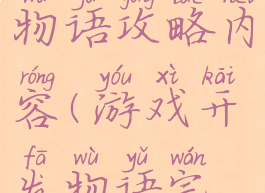 wù yǔ gōng lüè nèi
物语攻略内
róng yóu xì kāi
容(游戏开
fā wù yǔ wán
发物语完